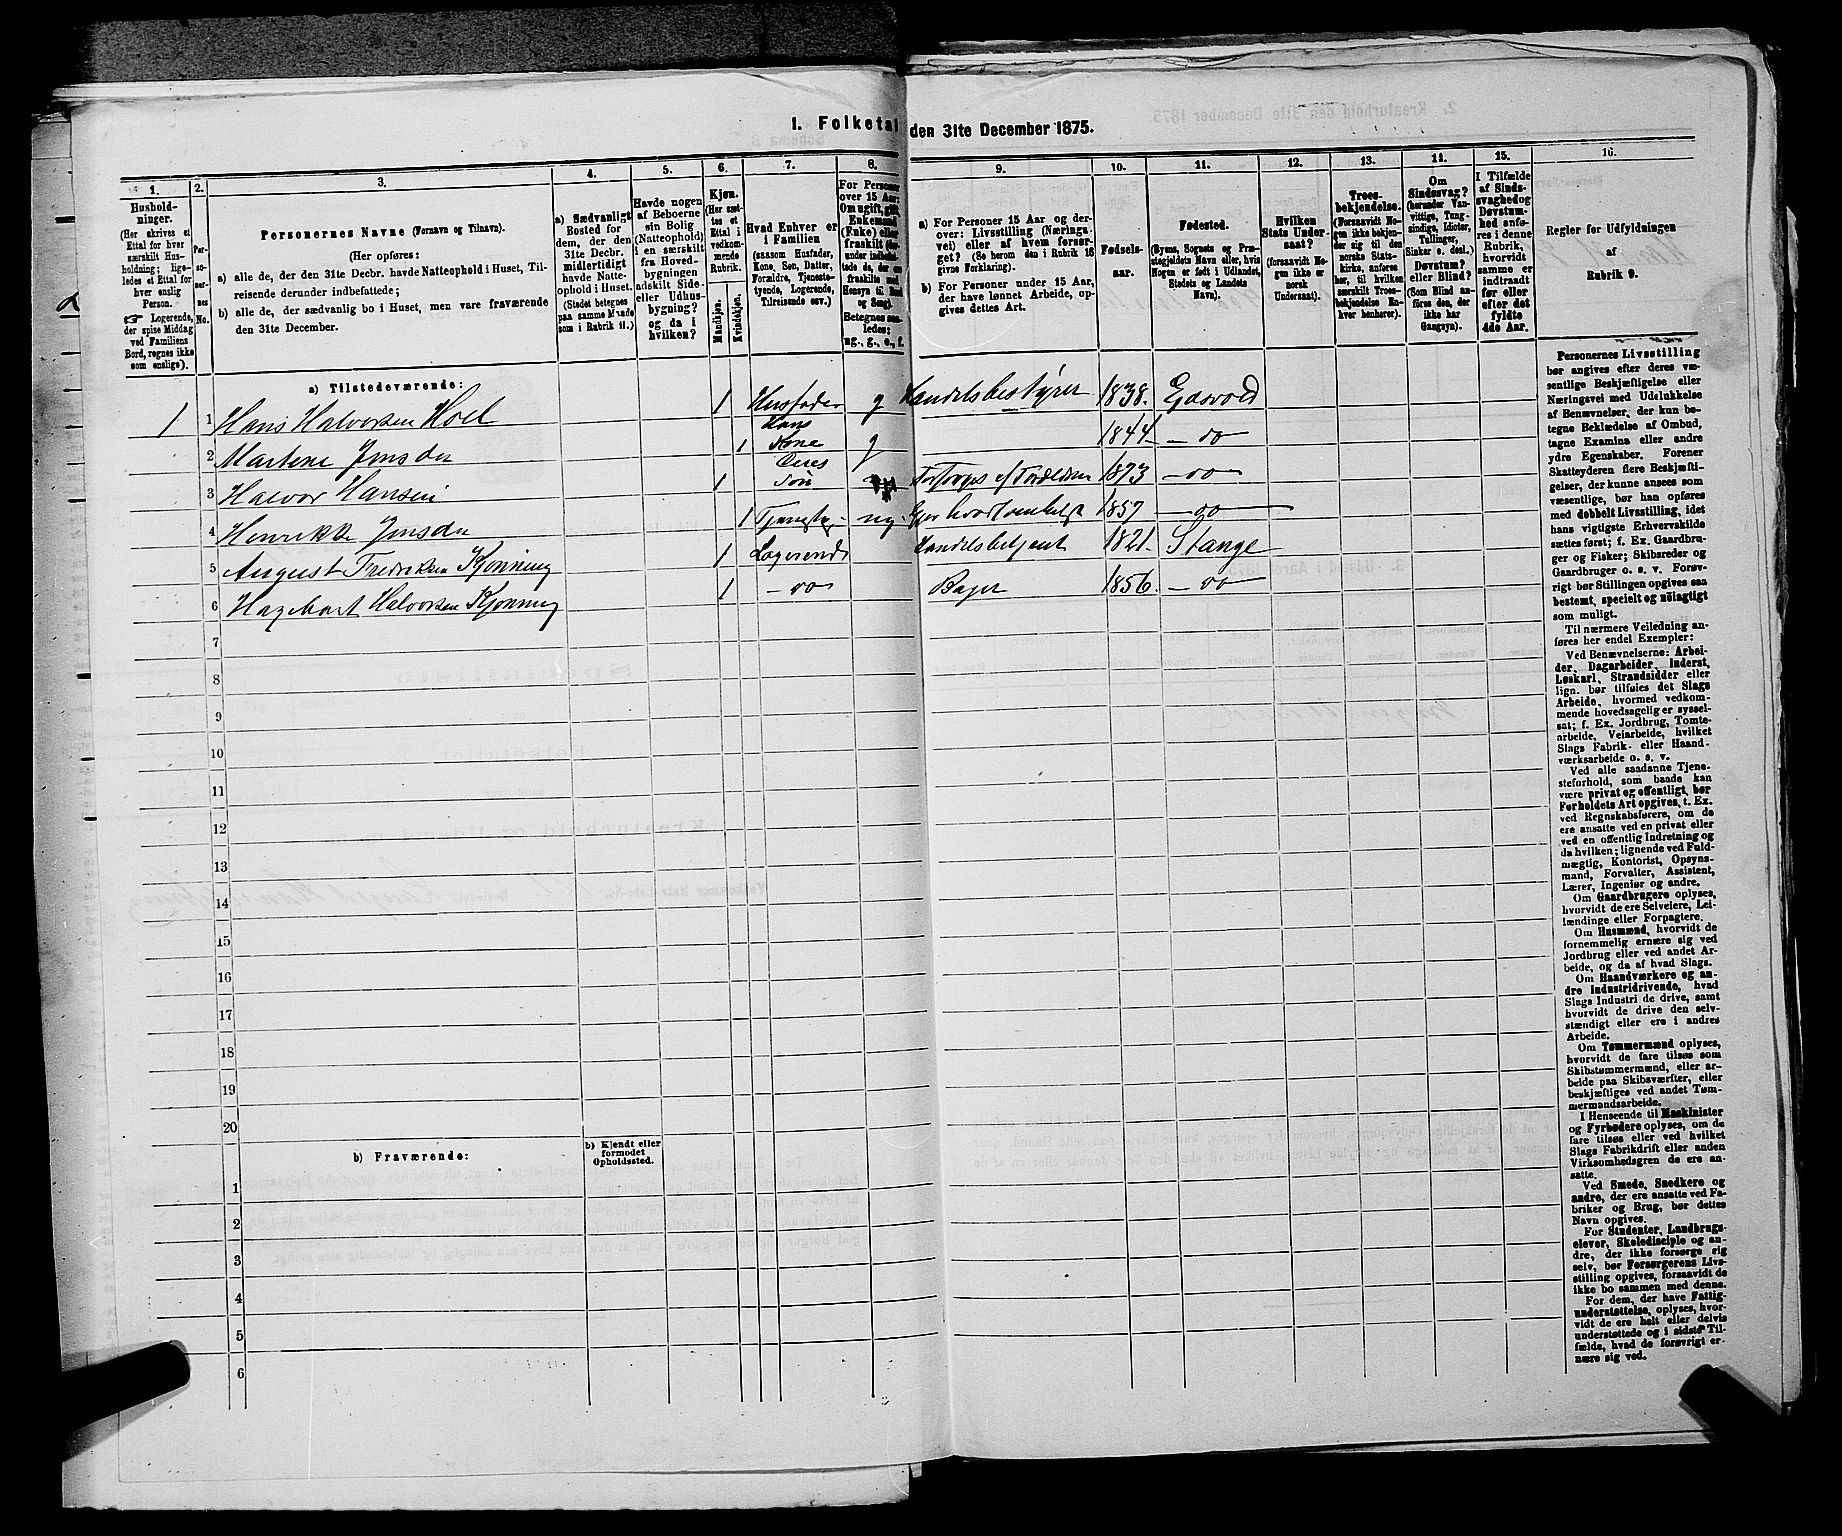 1. Folketal den 31te December 1875.
1.
Hushold-
ninger.
(Her skrives et
Ettal for hver
særskilt Hus-
holdning; lige-
ledes et Ettal for
hver enslig
Person.
☞ Logerende,
der spise Middag
ved Familiens
Bord, regnes ikke
som enslige).
2.
Per-
so-
ner-
nes
No.
3.
Personernes Navne (Fornavn og Tilnavn).
(Her opføres:
a) alle de, der den 31te Decbr. havde Natteophold i Huset, Til-
reisende derunder indbefattede;
b) alle de, der sædvanlig bo i Huset, men vare fraværende
den 31te December.
4.
a) Sædvanligt
Bosted for
dem, der den
31te Decbr.
midlertidigt
havde Natte-
ophold i Huset.
(Stedet betegnes
paa samme Maade
som i Rubrik 11.)
5.
Havde nogen
af Beboerne
sin Bolig
(Natteophold)
i en særskilt
fra Hoved-
bygningen
adskilt Side-
eller Udhus-
bygning?
og da i
hvilken?
6.
Kjøn.
(Her sæt-
tes et
Ettal i
vedkom-
mende
Rubrik.
Mandkjøn.
Kvindekjøn.
7.
Hvad Enhver er
i Familien
(saasom Husfader,
Kone, Søn, Datter,
Forældre, Tjeneste-
tyende, Logerende,
Tilreisende osv.)
8.
For Personer
over 15 Aar:
Om ugift, gift,
Enkemand
(Enke) eller
fraskilt
Betegnes saa-
ledes:
ug., g., e., f.
9.
a) For Personer 15 Aar og der-
over: Livsstilling (Nærings-
vei) eller af hvem forsør-
get? (Se herom den i Rubrik 16
givne Forklaring).
b) For Personer under 15 Aar,
der have lønnet Arbeide, op-
gives dettes Art.
10.
Fødsels-
aar.
11.
Fødested.
(Byens, Sognets og Præ-
stegjeldets Navn eller, hvis
Nogen er født i Udlandet,
Stedets og Landets
Navn).
12.
Hvilken
Stats Under-
saat?
(forsaavidt No-
gen ikke er
norsk
Undersaat).
13.
Troes-
bekjendelse.
(Forsaavidt No-
gen ikke bekjen-
der sig til den
norske Stats-
kirke, anføres
her, til hvilken
særskilt Troes-
bekjendelse En-
hver henhører).
14.
Om
Sindssvag?
(herunder Van-
vittige, Tung-
sindige, Idioter,
Tullinger,
Sinker o. desl.)
Døvstum?
eller Blind?
(Som Blind an-
føres den, der
ikke har
Gangsyn).
15.
I Tilfælde
af Sinds-
svaghed og
Døvstum-
hed anfø-
res i denne
Rubrik,
hvorvidt
samme er
indtraadt
før eller
efter det
fyldte
4de Aar.
16.
Regler for Udfyldningen
af
Rubrik 9.
a) Tilstedeværende:
1 1 Hans Halvorsen Hoel 1 Husfader g Handelsbestyrer 1838. Eidsvold
2 Martene Jensdtr 1 Hans Kone g 1844 – do –
3 Halvor Hansen 1 Deres Søn Forsørges af Forældrene 1873 – do –
4 Henrikke Jensdtr 1 ug. 1857 – do –
5 August Fredriksen Kjønning 1 Logerende Handelsbetjent 1821. Stange
6 Hagebart Halvorsen Kjønning 1 – do Bager 1856. – do –
7
8
9
10
11
12
13
14
15
16
17
18
19
20
b) Fraværende:
b) Kjendt eller
formodet
Opholdssted.
1
2
3
4
5
6
Personernes Livsstilling
bør angives efter deres væ-
sentlige Beskjæftigelse eller
Næringsvei med Udelukkelse
af Benævnelser, der kun be-
tegne Beklædelse af Ombud,
tagne Examina eller andre
ydre Egenskaber. Forener
Skatteyderen flere Beskjæfti-
gelser, der kunne ansees som
væsentlige, bør han opføres
med dobbelt Livsstilling, idet
hans vigtigste Erhvervskilde
sættes først; f. Ex. Gaardbru-
ger og Fisker; Skibsreder og
Gaardbruger o. s. v. Forøv-
rigt bør Stillingen opgives saa
bestemt, specielt og nöiagtigt
som muligt.
Til nærmere Veiledning an-
føres her endel Exempler:
Ved Benævnelserne: Arbei-
der, Dagarbeider, Inderst,
Løskarl, Strandsidder eller
lign. bør tilføies det Slags
Arbeide, hvormed vedkom-
mende hovedsagelig er syssel-
sat; f. Ex. Jordbrug, Tomte-
arbeide, Veiarbeide, hvilket
Slags Fabrik- eller Haand-
værksarbeide o. s. v.
Ved alle saadanne Tjene-
steforhold, som baade kan
være privat og offentligt, bør
Forholdets Art opgives, t. Ex.
ved Regnskabsførere, om de
ere ansatte ved en privat eller
ved en offentlig Indretning og
da hvilken; lignende ved Fuld-
mægtig, Kontorist, Opsyns-
mand, Forvalter, Assistent,
Lærer, Ingeniør og andre.
Om Gaardbrugere oplyses,
hvorvidt de ere Selveiere, Lei-
lændinge eller Forpagtere.
Om Husmænd, hvorvidt de
fornemmelig ernære sig ved
Jordbrug eller ved andet Ar-
beide, og da af hvad Slags.
Om Haandværkere og an-
dre Industridrivende, hvad
Slags Industri de drive, samt
hvorvidt de drive den selv-
stændigt eller ere i andres
Arbeide.
Om Tømmermænd oplyses,
hvorvidt de fare tilsøs som
Skibstømmermænd, eller ar-
beide paa Skibsværfter, eller
beskjæftiges ved andet Tøm-
mermandsarbeide.
I Henseende til Maskinister
og Fyrbødere oplyses, om de
fare tilsøs eller ved hvilket
Slags Fabrikdrift eller anden
Virksomhedsgren de ere an-
satte.
Ved Smede, Snedkere og
andre, der ere ansatte ved Fa-
briker og Brug, bør dettes
Navn opgives.
For Studenter, Landbrugs-
elever, Skoledisciple og an-
dre, der ikke forsørge sig
selv, bør Forsørgerens Livs-
stilling opgives, forsaavidt de
ikke bo sammen med denne.
For dem, der have Fattig-
understøttelse, oplyses, hvor-
vidt de ere helt eller delvis
understøttede og i sidste Til-
fælde, hvad de forøvrigt er-
nære sig ved.